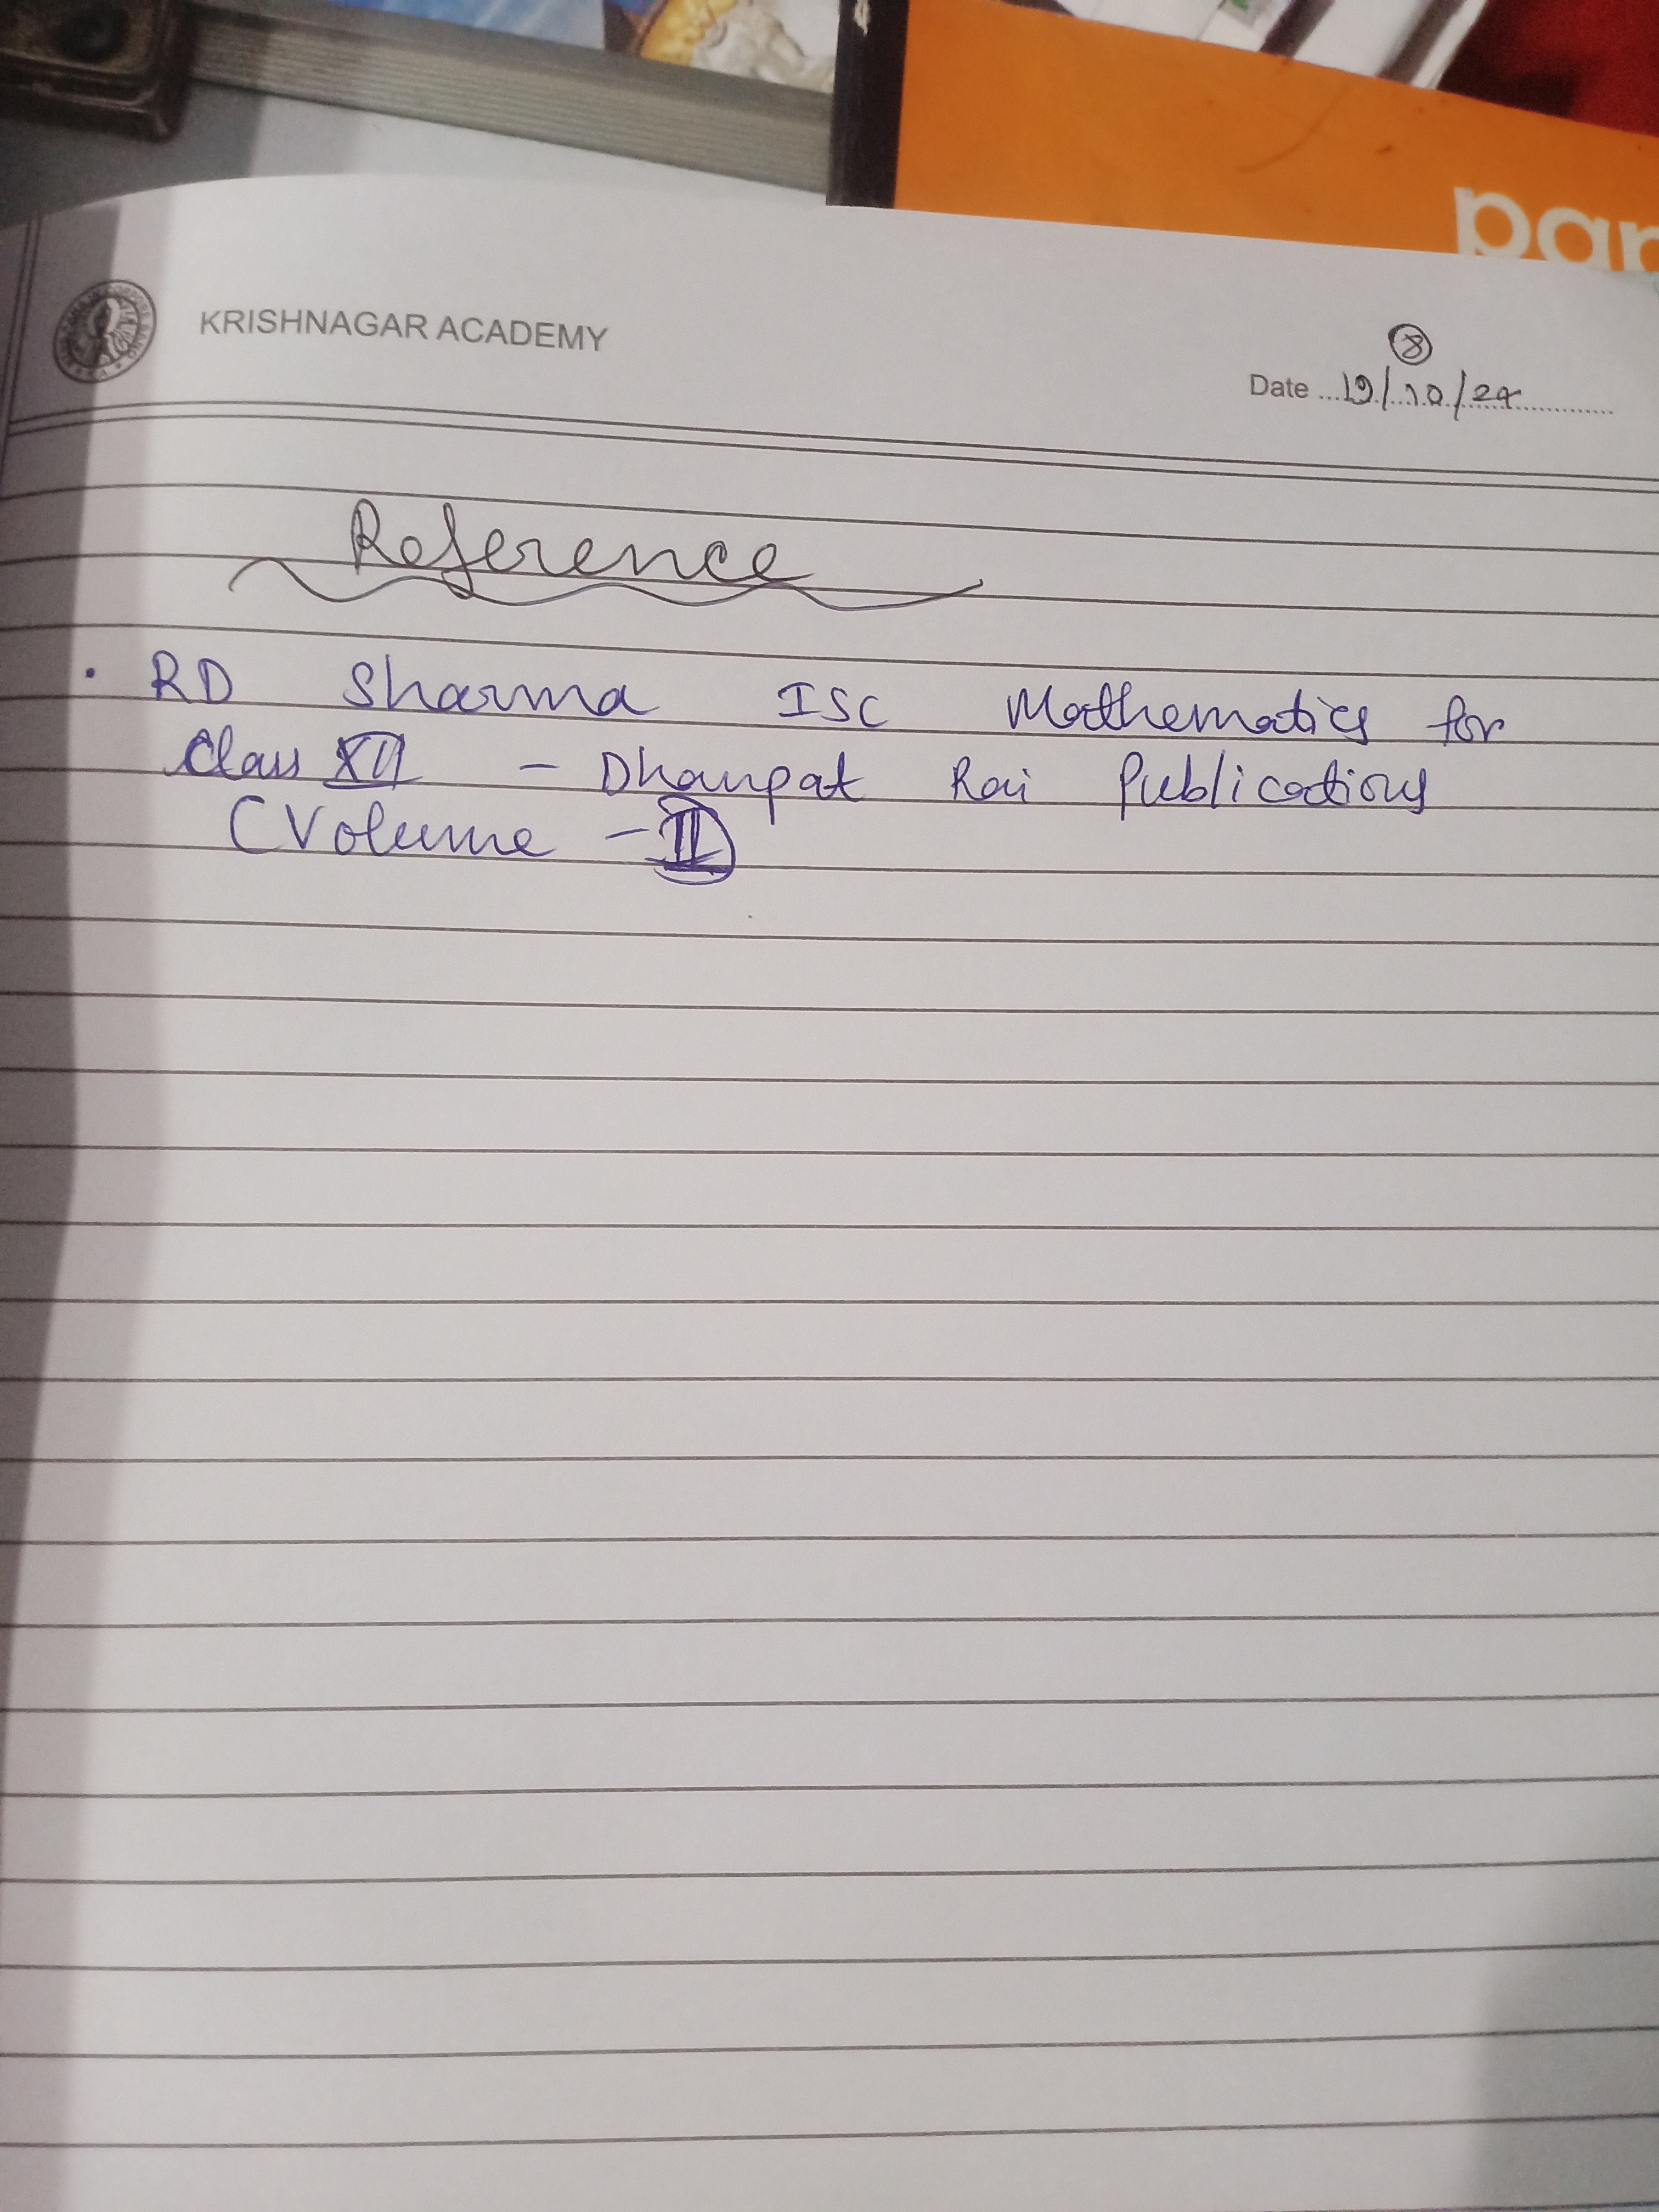 par
KRISHNAGAR ACADEMY
8
Date 19/10/24
Reference
• RD Sharma ISC Mathematics for
Class XII - Dhanpat Rai Publications
(Volume - II)